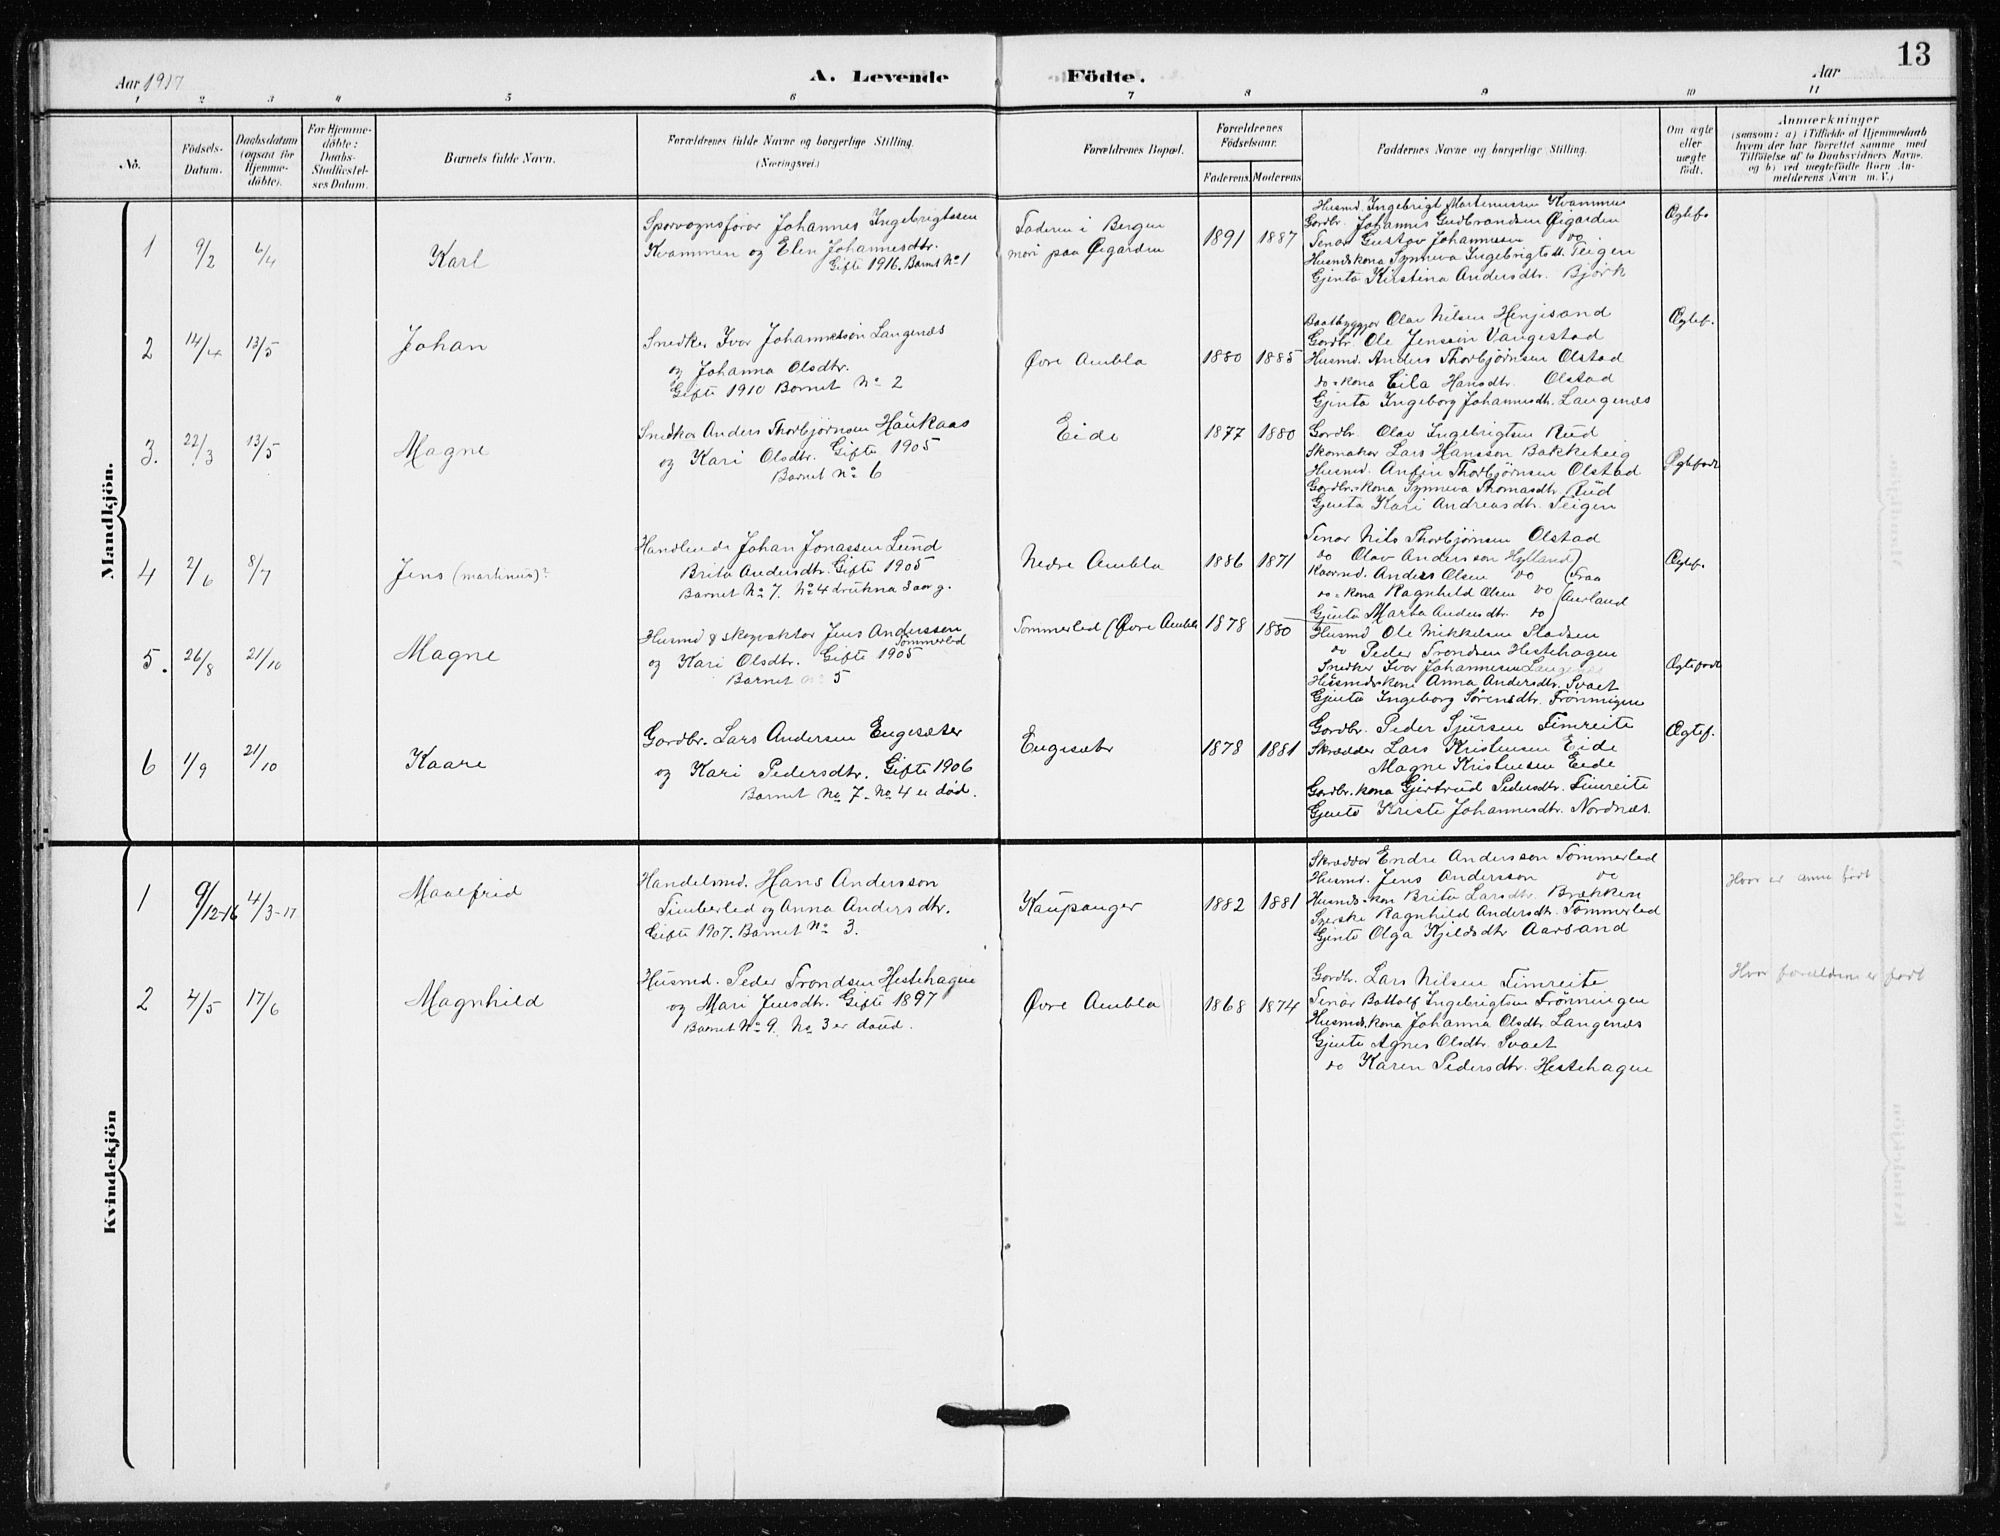 13
Aar 1917
A. Levende Födte.
Aar
1 2 3 4 5 6 7 8 9 10 11
No.
Födsels-
Datum.
Daabsdatum
(ogsaa for
Hjemme-
døbte).
For Hjemme-
døbte:
Daabs-
Stadfæstel-
ses Datum.
Barnets fulde Navn.
Forældrenes fulde Navne og borgerlige Stilling.
(Næringsvei.)
Forældrenes Bopæl.
Forældrenes
Födselsaar.
Faderens. Moderens.
Faddernes Navne og borgerlige Stilling.
Om ægte
eller
uægte
födt.
Anmærkninger
(saasom: a) i Tilfælde af Hjemmedaab
hvem der har forrettet samme, med
Tilföielse af to Daabsvidners Navne,
og b) ved uægtefödte Börn An-
melderens Navn m. V.)
Mandkjön.
1 9/2 6/4 Karl
Sporvognsførar Johannes Ingebrigtssen
Kvammen og Elen Johannesdtr.
Gifte 1916. Barnet No 1
Faderen i Bergen
mori paa Øigarden
1891 1887
Husmd. Ingebrigt Martenussen Kvammen
Gardbr. Johannes Gudbrandsen Øigarden
Tenar Gustav Johannesen do
Husmdskona Synneva Ingebrigtsdt. Teigen
Gjenta Kirstina Andersdtr. Bjørk
Ægtef.
2 14/4 13/5 Johan
Snedker Ivar Johannesson Langenæs
og Johanna Olsdtr.
Gifte 1910 Barnet No 2
Øvre Ambla
1880 1885
Baatbyggjar Olav Nilsen Henjesand
Gardbr. Ole Jensen Vangestad
Husmd. Anders Thorbjørnsen Olstad
do-kona Eila Hansdtr. Olstad
Gjenta Ingeborg Johannesdtr. Langenæs
Ægtef.
3. 22/3 13/5 Magne
Snedkar Anders Thorbjørnsen Haukaas
og Kari Olsdtr. Gifte 1905
Barnet No 6
Eide
1877 1880
Gardbr. Olav Ingebrigtsen Rud
Skomakar Lars Hansson Bakketeig
Husmd. Anfin Thorbjørnsen Olstad
Gardbr.skona Synneva Thomasdtr. Rud
Gjenta Kari Andreasdtr. Teigen
Ægtefødt
4 2/6 8/7 Jens (martinus)?
Handlende Johan Jonassen Lund
Brita Andersdtr. Gifte 1905
Barnet No 7. No 4 drukna 3 aar g.
Nedre Ambla
1886 1871
Tenar Nils Thorbjørnsen Olstad
do Olav Andersson Hylland
Kaarmd. Anders Olsen do (Fraa
do-kona Ragnhild Olsen do Aurland
Gjenta Marta Andersdtr. do
Ægtef.
5. 26/8 21/10 Magne
Husmd & skogvaktar Jens Anderssen
Tømmerled
og Kari Olsdtr. Gifte 1905
Barnet No 5
Tømmerled (Øvre Ambla
1878 1880
Husmd Ole Mikkelsen Stadsen
do Peder Trondsen Hestehagen
Snedker Ivar Johannesen Langenæs
Husmdskona Anna Andersdtr. Svaet
Gjenta Ingeborg Sørensdtr. Frønningen
Ægtefødt
6 1/9 21/10 Kaare
Gardbr. Lars Andersen Engesæter
og Kari Pedersdtr. Gifte 1906
Barnet No 7. No 4 er død.
Engesætr
1878 1881
Gardbr. Peder Sjursen Timreite
Skrædder Lars Kristensen Eide
Magne Kristensen Eide
Gardbr.kona Gjertrud Pedersdtr. Timreite
Gjenta Kriste Johannesdtr. Nordnæs.
Ægtef.
Kvindekjön
1 9/12-16 4/3-17 Maalfrid
Handelsmd. Hans Andersson
Timberled og Anna Andersdtr.
Gifte 1907. Barnet No 3.
Kaupanger
1882 1881
Skræddar Endre Andersson Tømmerled
Husmd. Jens Andersson do
Husmds-kon Brita Larsdtr. Brækken
Syerske Ragnhild Andersdtr. Tømmerled
Gjenta Olga Kjeldsdtr Aarsand
Hvor er Anna født
2 4/5 17/6 Magnhild
Husmd. Peder Trondsen Hestehagen
og Mari Jensdtr. Gifte 1897
Barnet No 9. No 3 er daud.
Øvre Ambla
1868 1874
Gardbr. Lars Nilsen Timreite
Tenar Bottolf Ingebrigtsen Frønningen
Husmds.kona Johanna Olsdtr Langenæs
Gjenta Agnes Olsdtr. Svaet
do Karen Pedersdtr. Hestehagen
Hvor forældrene er født